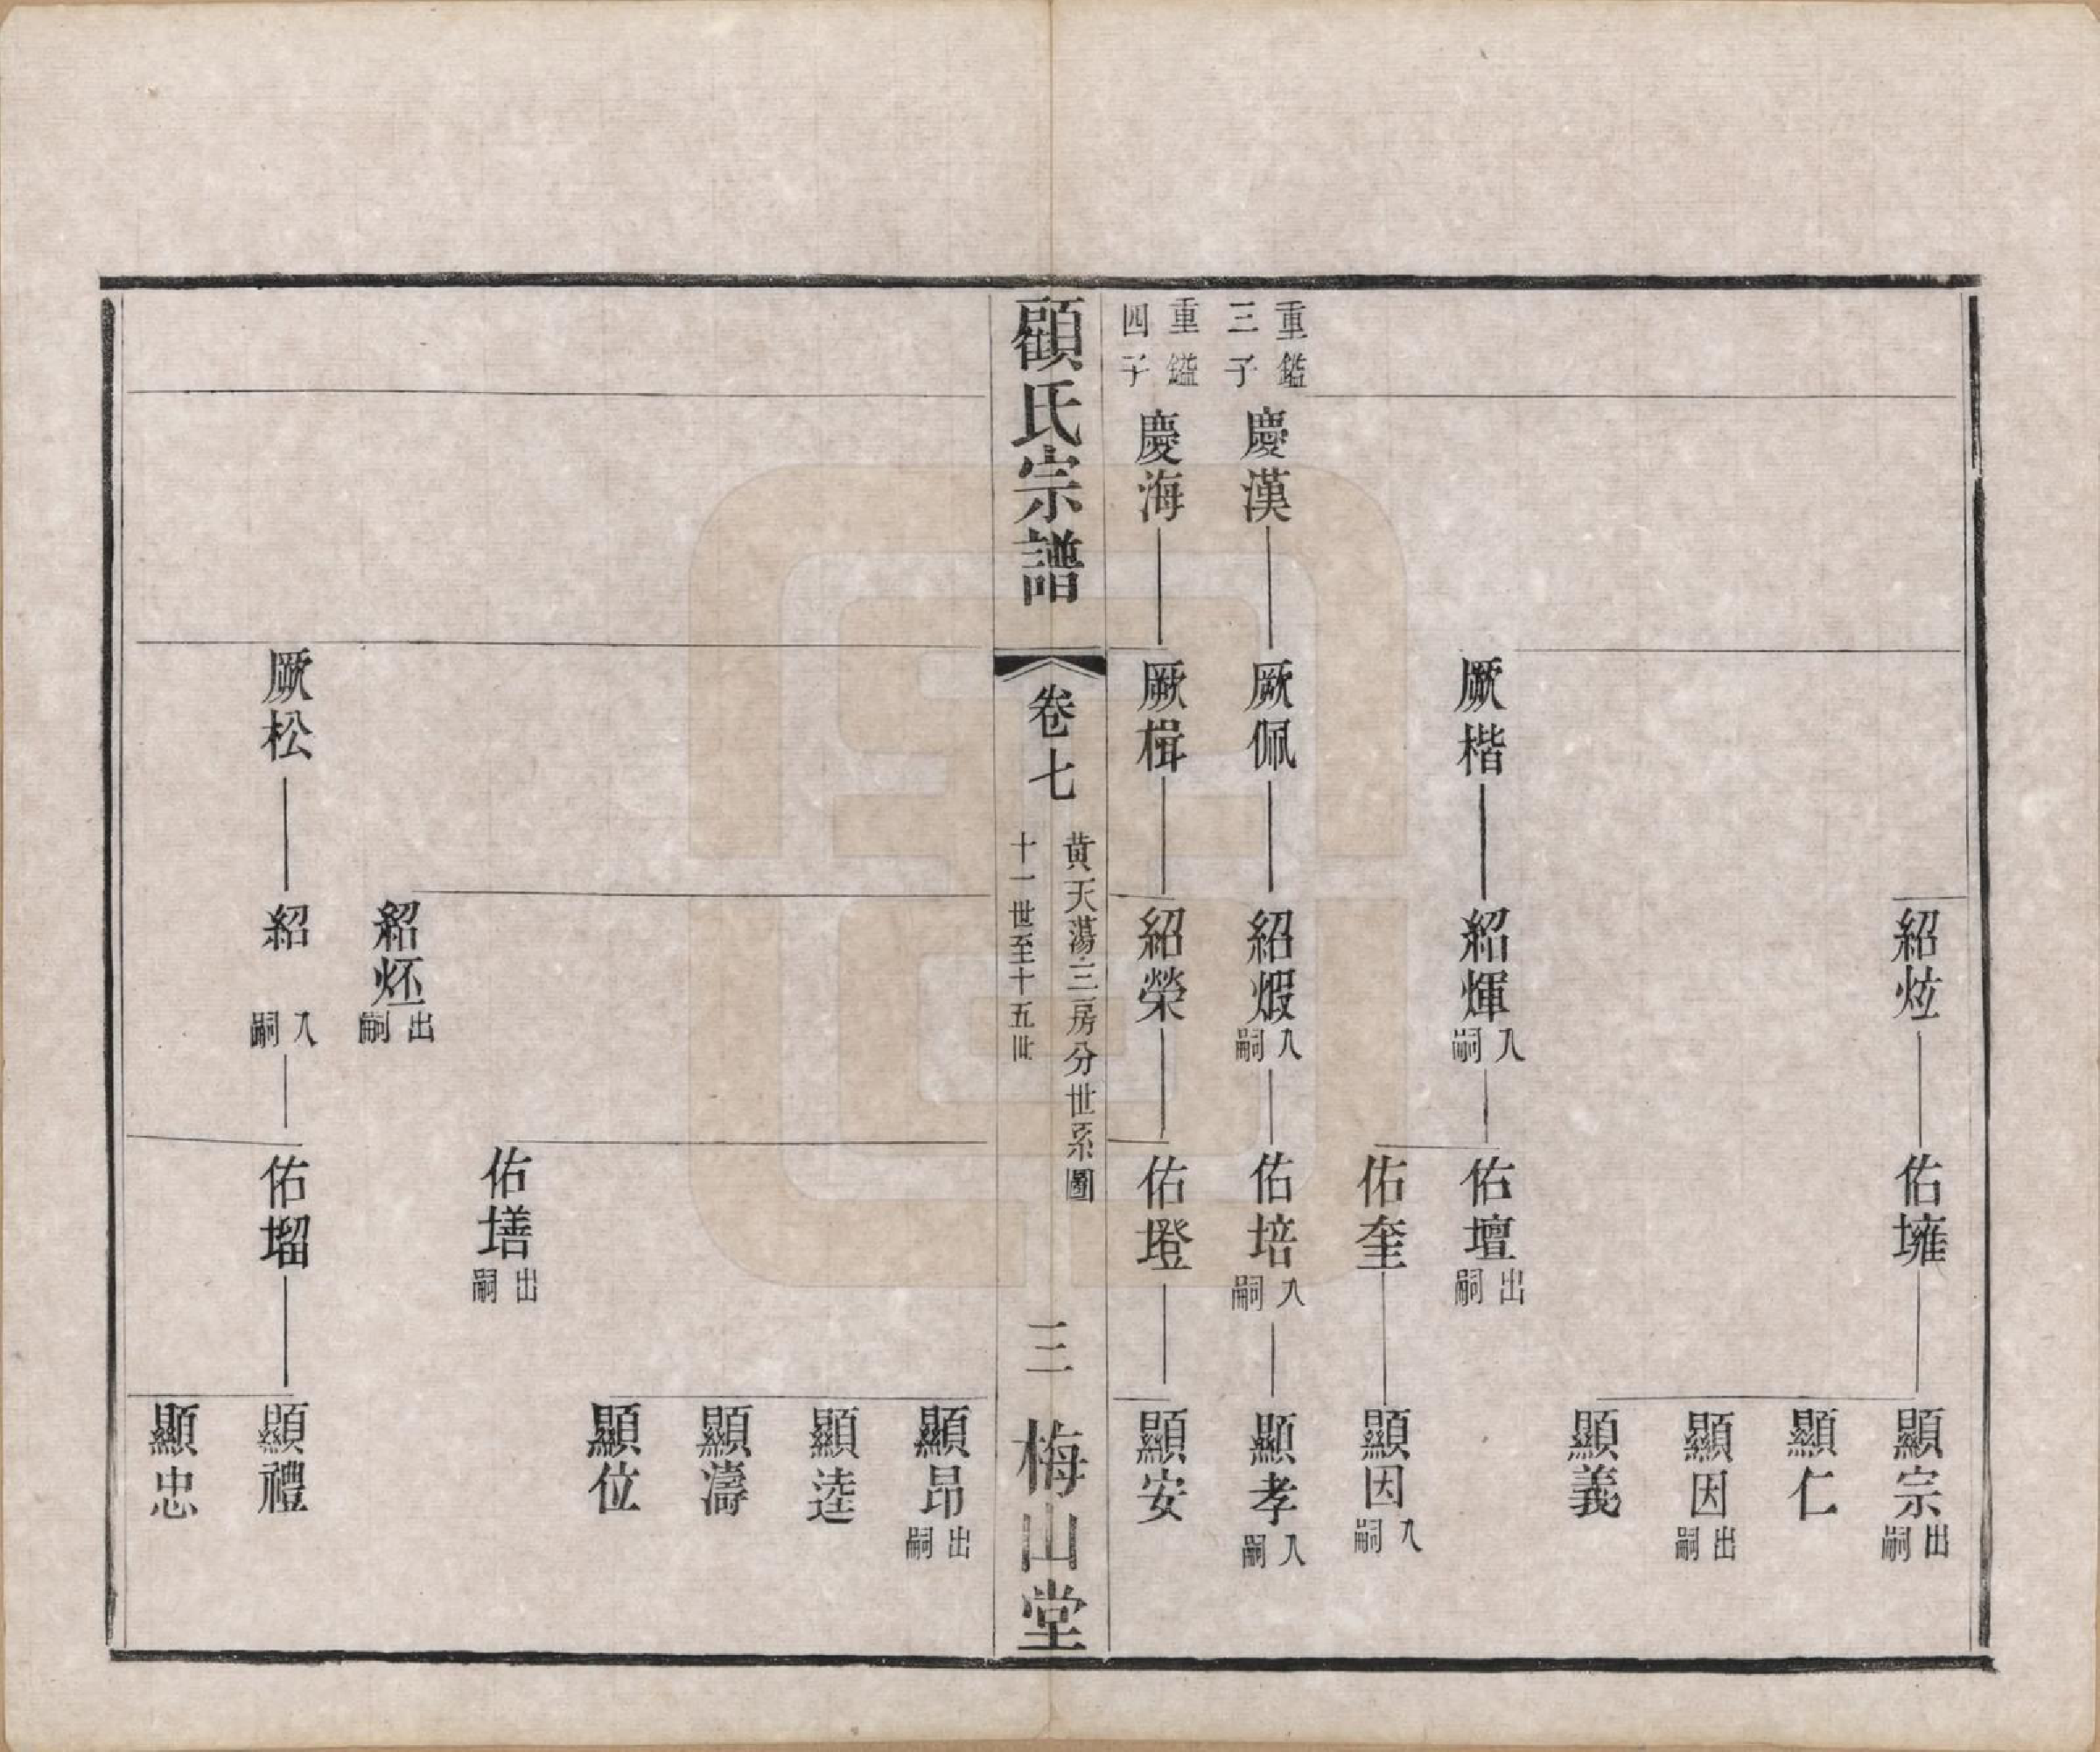 紹炫
佑壅
顯宗出嗣
顯仁
顯因出嗣
顯義
厥楷
紹煇入嗣
佑壇出嗣
佑奎
顯因入嗣
重鎰三子
慶漢
厥佩
紹煆入嗣
佑培入嗣
顯孝入嗣
重鎰四子
慶海
厥楫
紹榮
佑墱
顯安
顧氏宗譜
卷七
黃天蕩三房分世系圖
十一世至十五世
三
梅山堂
顯昂出嗣
顯逵
顯濤
顯位
佑墡出嗣
紹炋出嗣
厥松
紹 入嗣
佑塯
顯禮
顯忠